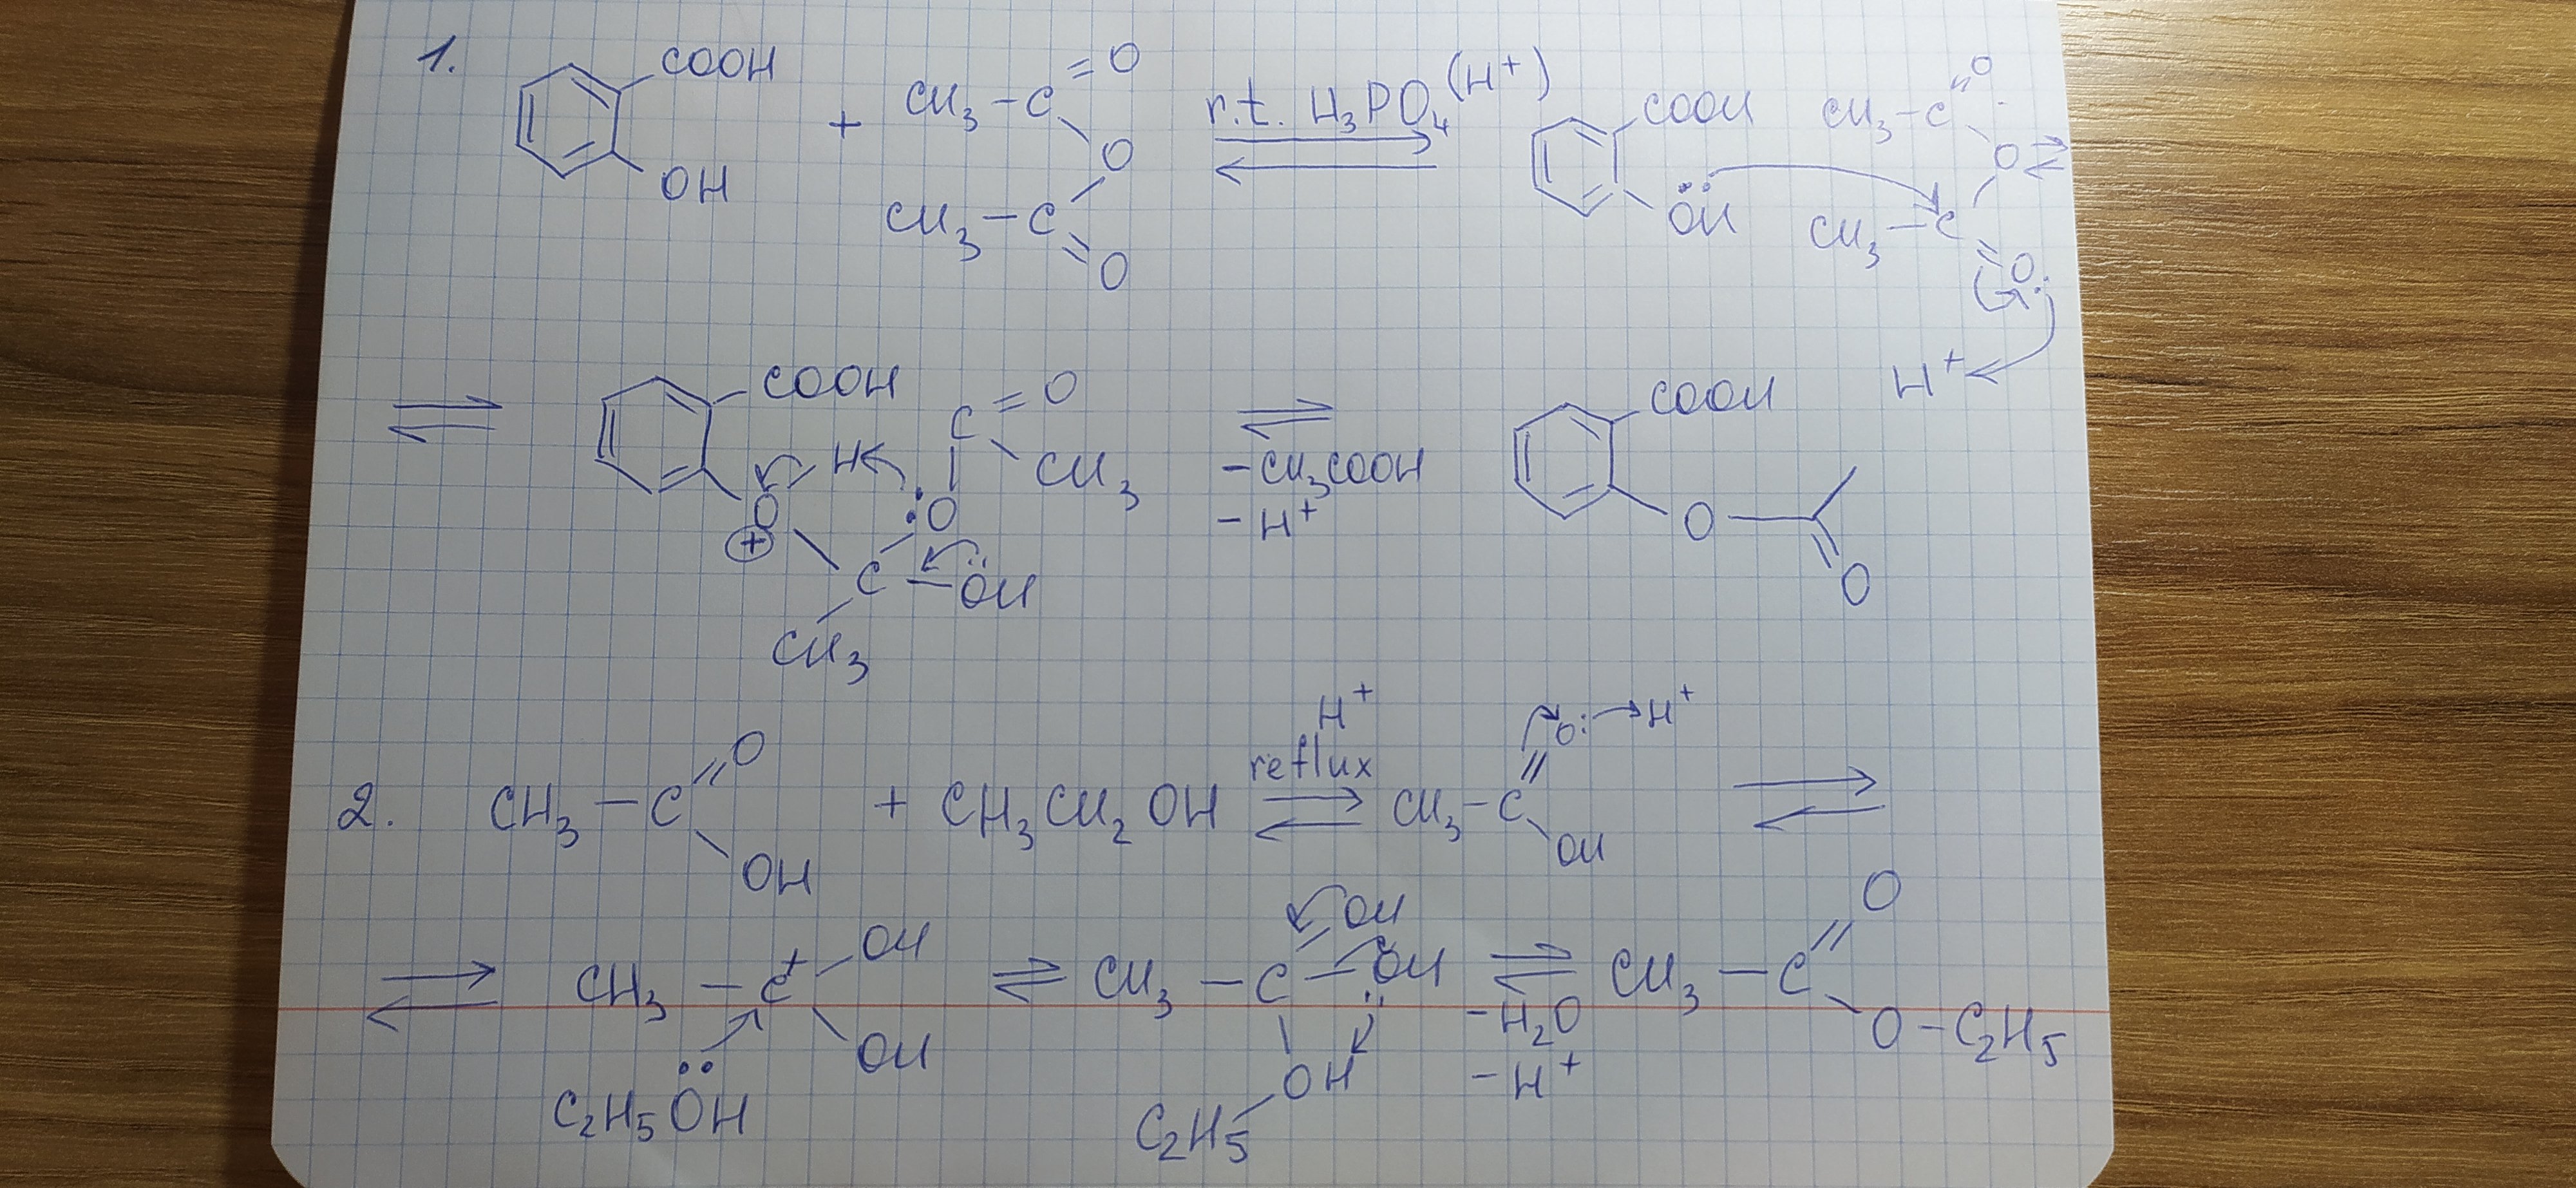 1. COOH OH + CH3-C=O O CH3-C=O r.t. H3PO4 (H+) COOH ÖH CH3-C=O O CH3-C=O:
H+
COOH O ⊕ H C=O CH3 :O C-ÖH CH3 -CH3COOH -H+ COOH O O
2. CH3-C=O OH + CH3CH2OH H+ reflux CH3-C=O: OH → H+
CH3-C+ OH OH C2H5ÖH CH3-C=OH -OH OH C2H5 -H2O -H+ CH3-C=O O-C2H5